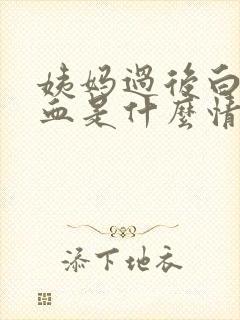 姨妈过后白
血是什麼情
添下地衣